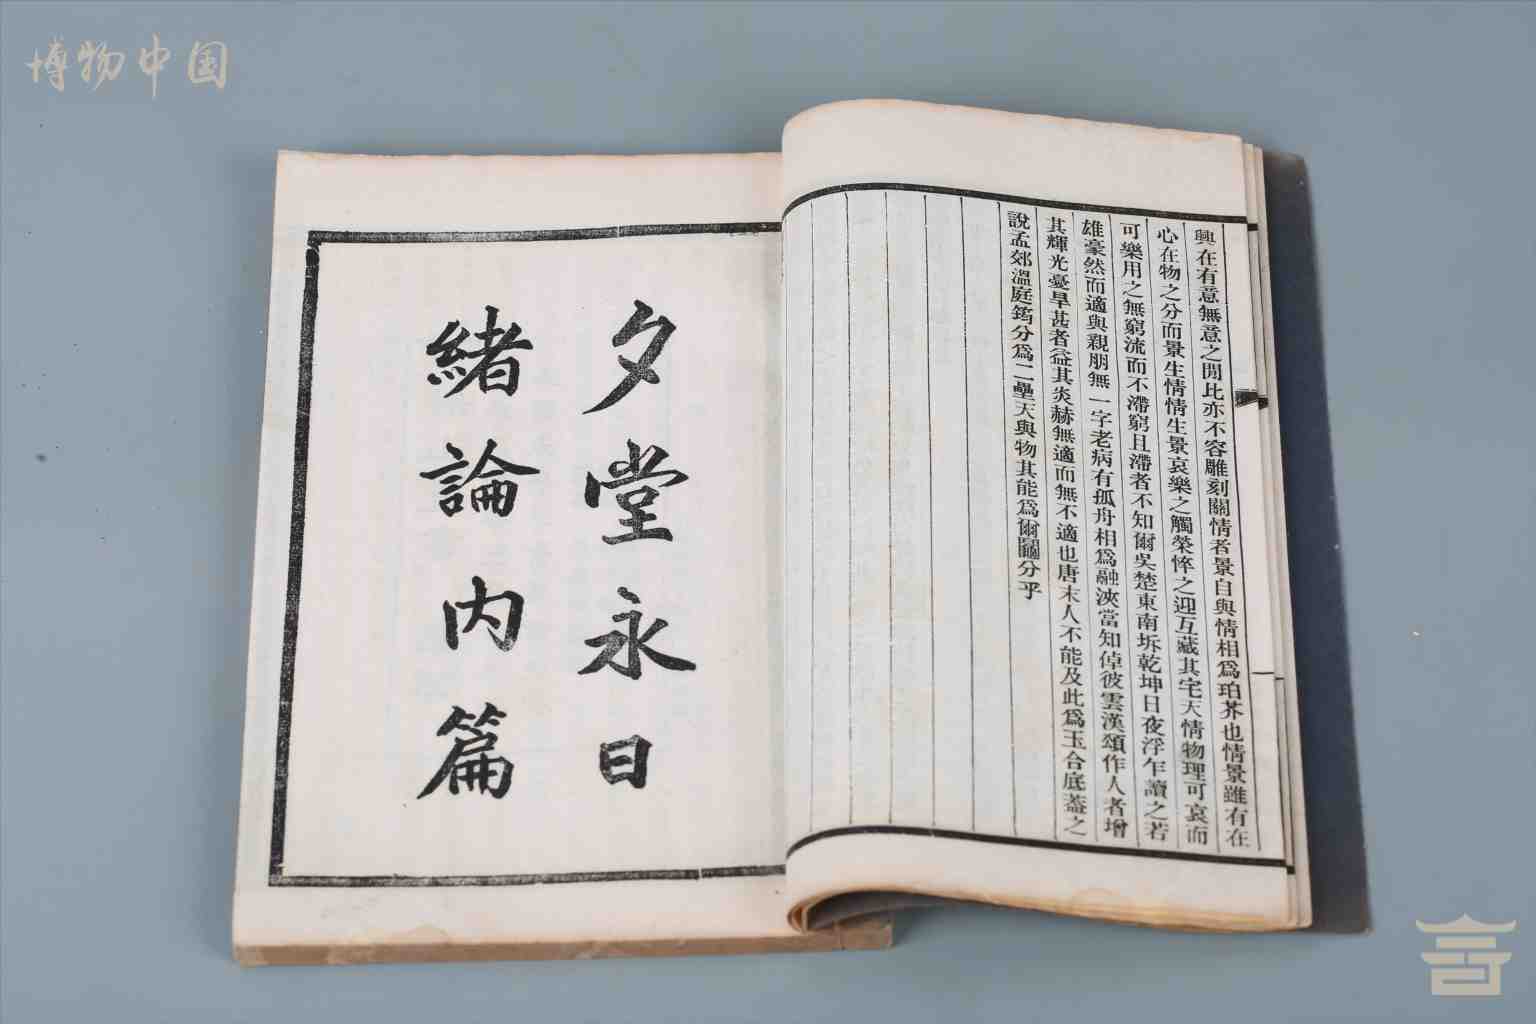 博物中国
興在有意無意之閒比亦不容雕刻關情者景自與情相為珀芥也情景雖有在
心在物之分而景生情情生景哀樂之觸榮悴之迎互藏其宅天情物理可哀而
可樂用之無窮流而不滯窮且滯者不知爾吳楚東南坼乾坤日夜浮乍讀之若
雄豪然而適與親朋無一字老病有孤舟相為融浹當知倬彼雲漢頌作人者增
其輝光憂旱甚者益其炎赫無適而無不適也唐末人不能及此為玉合底蓋之
說孟郊溫庭筠分為二壘天與物其能為爾鬮分乎
夕堂永日
緒論內篇